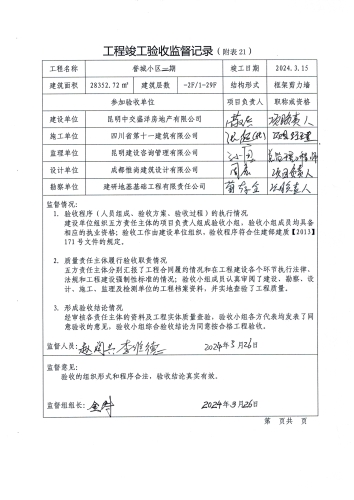 工程竣工验收监督记录（附表21）
工程名称 誉城小区二期 竣工日期 2024.3.15
建筑面积 28352.72㎡ 建筑层数 -2F/1-29F 结构形式 框架剪力墙
参加验收单位 项目负责人 职称或资格
建设单位 昆明中交盛洋房地产有限公司 项目负责人
施工单位 四川省第十一建筑有限公司 项目经理
监理单位 昆明建设咨询管理有限公司 总监理工程师
设计单位 成都惟尚建筑设计有限公司 项目负责人
勘察单位 建研地基基础工程有限责任公司 项目负责人
监督情况：
1、验收程序（人员组成、验收方案、验收过程）的执行情况
建设单位组织五方责任主体的项目负责人组成验收小组，验收小组成员均具备
相应的执业资格；验收工作由建设单位组织、验收程序符合住建部建质【2013】
171号文件的规定。
2、质量责任主体履行验收职责情况
五方责任主体分别汇报了工程合同履约情况和在工程建设各个环节执行法律、
法规和工程建设强制性标准的情况；验收小组成员认真审阅了建设、勘察、设
计、施工、监理及检测单位的工程档案资料，并实地查验了工程质量。
3、形成验收结论情况
经审核各责任主体的资料及工程实体质量查验，验收小组各方代表均发表了同
意验收的意见，验收小组综合验收结论为同意综合格工程验收。
监督人员： 2024年3月26日
监督意见：
验收的组织形式和程序合法，验收结论真实有效。
监督组组长： 2024年3月26日
第 页共 页